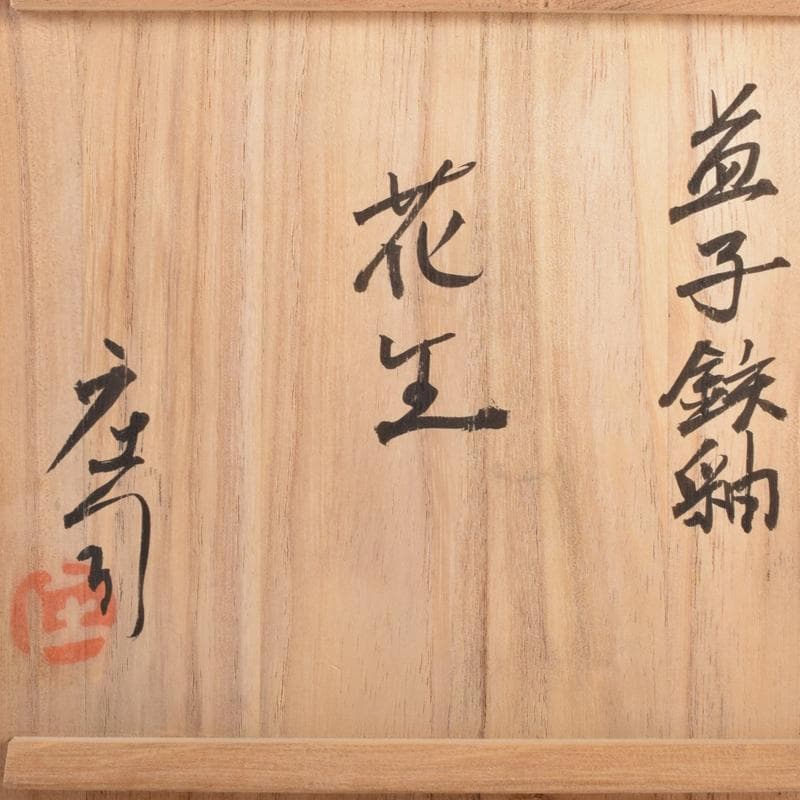 益子鉄釉
花生
庄司
庄